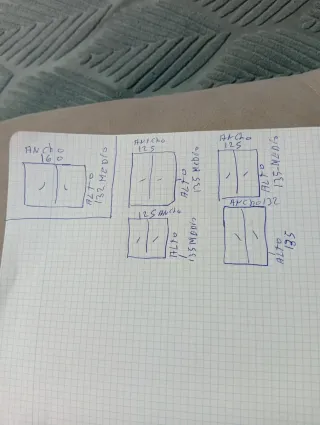 ANCHO
160
ALTO
132 MEDIO
ANCHO
125
ALTO
135 MEDIO
ANCHO
125
ALTO
135 MEDIO
125 ANCHO
ALTO
135 MEDIO
ANCHO 132
ALTO
185